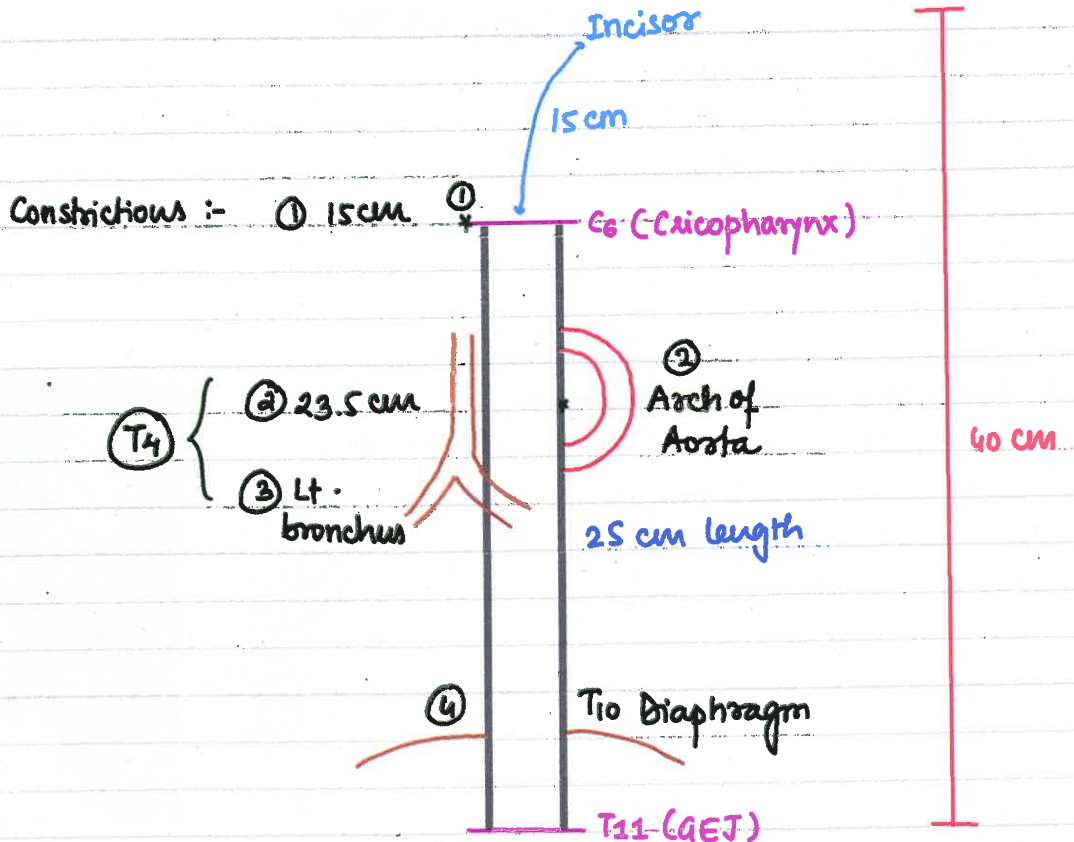 Incisor
15 cm
Constrictions :- ① 15cm
①
C6 (Cricopharynx)
② 23.5 cm
T4
③ Lt.
bronchus
②
Arch of
Aorta
40 cm
25 cm length
④
T10 Diaphragm
T11 (GEJ)